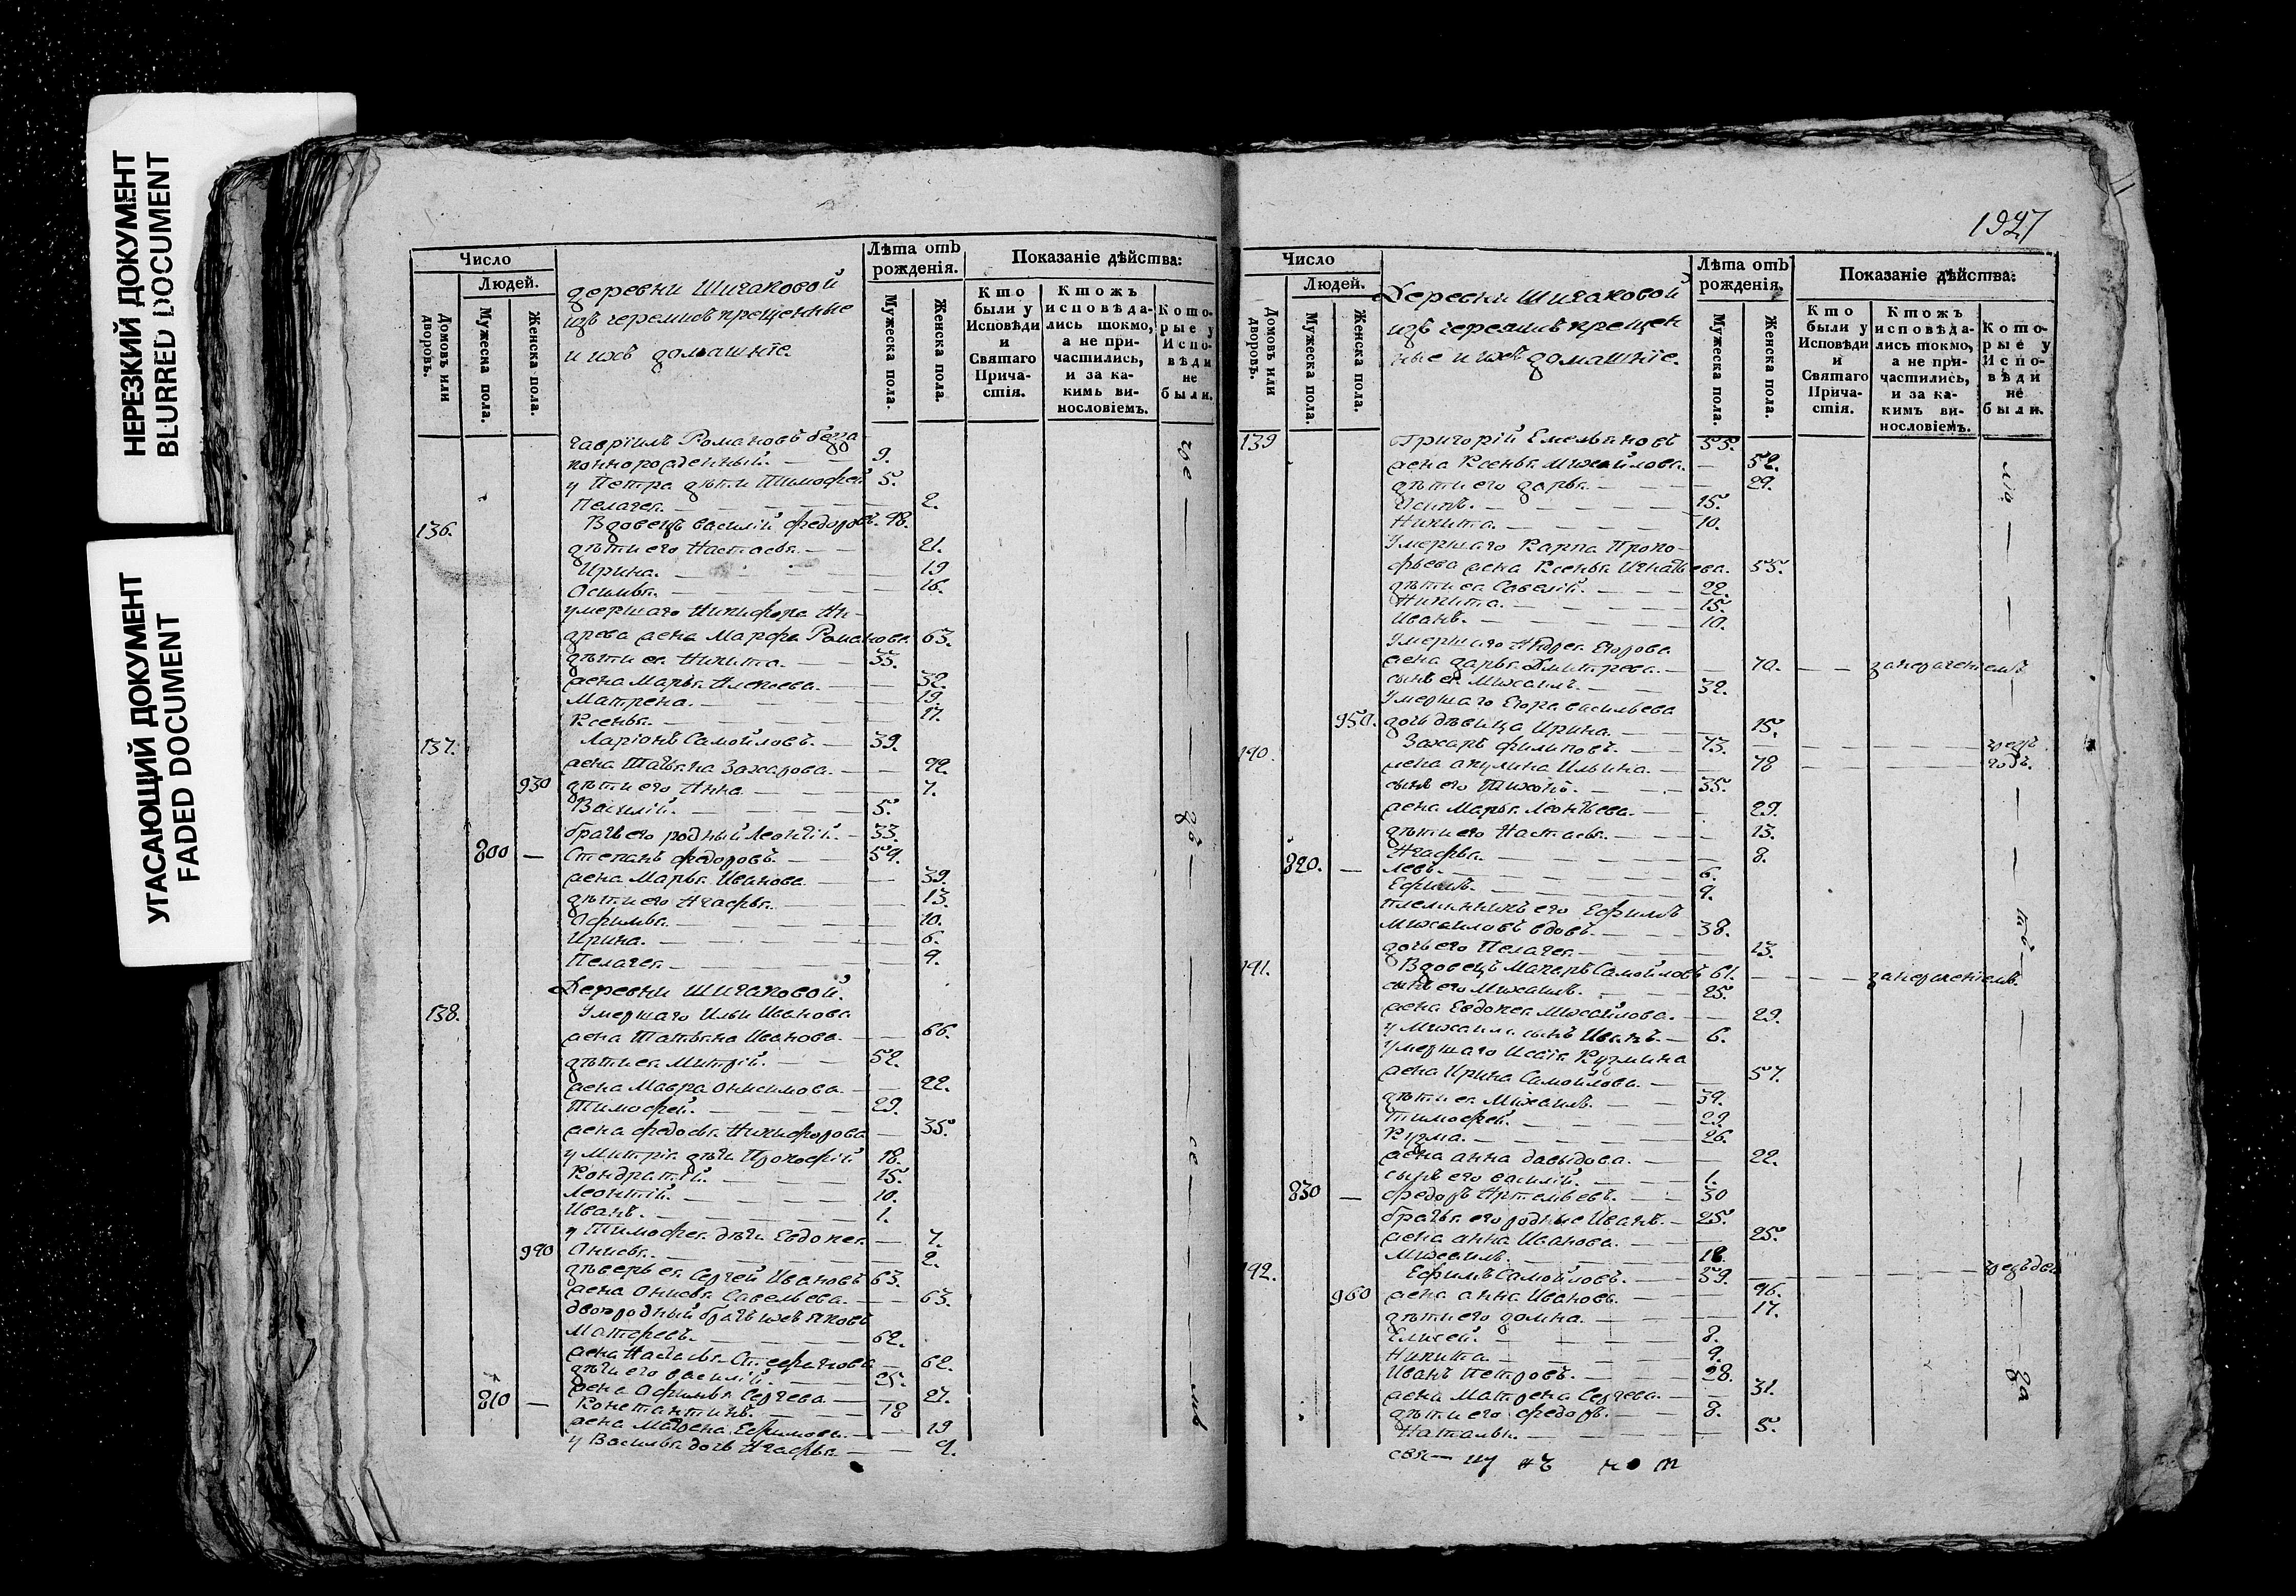 НЕРЕЗКИЙ ДОКУМЕНТ
BLURRED DOCUMENT
УГАСАЮЩИЙ ДОКУМЕНТ
FADED DOCUMENT
Число
Людей.
Домовъ или дворовъ.
Мужеска пола.
Женска пола.
деревни Шигаковой
изъ черемисъ крещенные
и ихъ домашнїе.
Лѣта отъ рожденїя.
Мужеска пола.
Женска пола.
Показанїе дѣйства:
Кто были у Исповѣди и Святаго Причастїя.
Ктожъ исповѣдались токмо, а не причастились, и за какимъ винословїемъ.
Которые у Исповѣди не были.
Гаврїилъ Романовъ
9.
у Петра дѣти Тимофей 5.
Пелагея 2.
136. Вдовецъ Василїй Федоровъ 48.
дѣти его Настасья 21.
Ирина. 19
16.
умершаго Никифора Ан-
древа жена Марфа Романова 63.
дѣти ея Никита. 33.
жена Марья Алексева. 32.
Матрена. 19.
Ксенья. 17.
137. Ларїонъ Самойловъ. 39.
жена Татьяна Захарова. 42.
930 дѣти его Анна 7.
Василїй. 5.
братъ его родный Леонтїй. 33
800 Степанъ Федоровъ. 54.
жена Марья Иванова 39.
дѣти его Агафья. 13.
Офимья. 10.
Ирина. 6.
Пелагея 4.
Деревни Шигаковой.
138. Умершаго Ильи Иванова
жена Татьяна Иванова. 66.
дѣти ея Митрїй. 52.
жена Мавра Онисимова. 42.
Тимофей. 29.
жена Федосья Никифорова 35.
у Митрїя дѣти Прокофїй 18.
Кондратїй. 15.
Леонтїй. 10.
Иванъ. 1.
у Тимофея дѣти Евдокея 7.
940 Анисья. 2.
деверь ея Сергей Ивановъ 63.
жена Анисья Савельева. 63.
двоюродный братъ ихъ Яковъ
Матфеевъ. 62.
жена Настасья Стефанова 62.
дѣти его Василїй. 25.
жена Офимья Сергева 27.
810 Константинъ. 18
жена Матрена Ефимова. 19
у Василья дочь Агафья 4.
1947
Число
Людей.
Домовъ или дворовъ.
Мужеска пола.
Женска пола.
Деревни Шигаковой
изъ черемисъ крещен
ные и ихъ домашнїе.
Лѣта отъ рожденїя.
Мужеска пола.
Женска пола.
Показанїе дѣйства:
Кто были у Исповѣди и Святаго Причастїя.
Ктожъ исповѣдались токмо, а не причастились, и за какимъ винословїемъ.
Которые у Исповѣди не были.
139 Григорїй Емельяновъ 55.
жена Ксенья Михайлова. 52.
дѣти его Дарья. 29.
Осипъ. 15.
Никита. 10.
Умершаго Карпа Проко-
фьева жена Ксенья Игнатьева. 55.
дѣти ея Савелїй. 22.
Никита. 15.
Иванъ. 10.
Умершаго Андрея Егорова
жена Дарья Дмитрева. 70.
сынъ ея Михаилъ. 32.
Умершаго Егора Васильева
950. дочь девица Ирина. 15.
140. Захаръ Филиповъ. 73.
жена Акулина Ильина. 78
сынъ его Тихонъ. 35.
жена Марья Леонтьева. 29.
дѣти его Настасья. 13.
Агафья. 8.
820. Левъ. 6.
Ефимъ. 4.
племянникъ его Ефимъ
Михаиловъ вдовъ. 38.
дочь его Пелагея. 13.
141. Вдовецъ Макаръ Самойловъ 61.
сынъ его Михаилъ. 25.
жена Евдокея Михайлова. 29.
у Михаила сынъ Иванъ. 6.
умершаго Исаїя Кузмина
жена Ирина Самойлова. 57.
дѣти ея Михаилъ. 34.
Тимофей. 29.
Кузма. 26.
жена Анна Давыдова. 22.
сынъ его Василїй. 1.
830 Федоръ Артемьевъ. 30
братья его родные Иванъ. 25.
жена Анна Иванова. 25.
Михаилъ. 18
142. Ефимъ Самойловъ. 59.
960 жена Анна Иванова. 46.
дѣти его Домна. 17.
Елисей. 8.
Никита. 4.
Иванъ Петровъ. 28.
жена Матрена Сергева. 31.
дѣти его Федоръ. 8.
Наталья. 5.